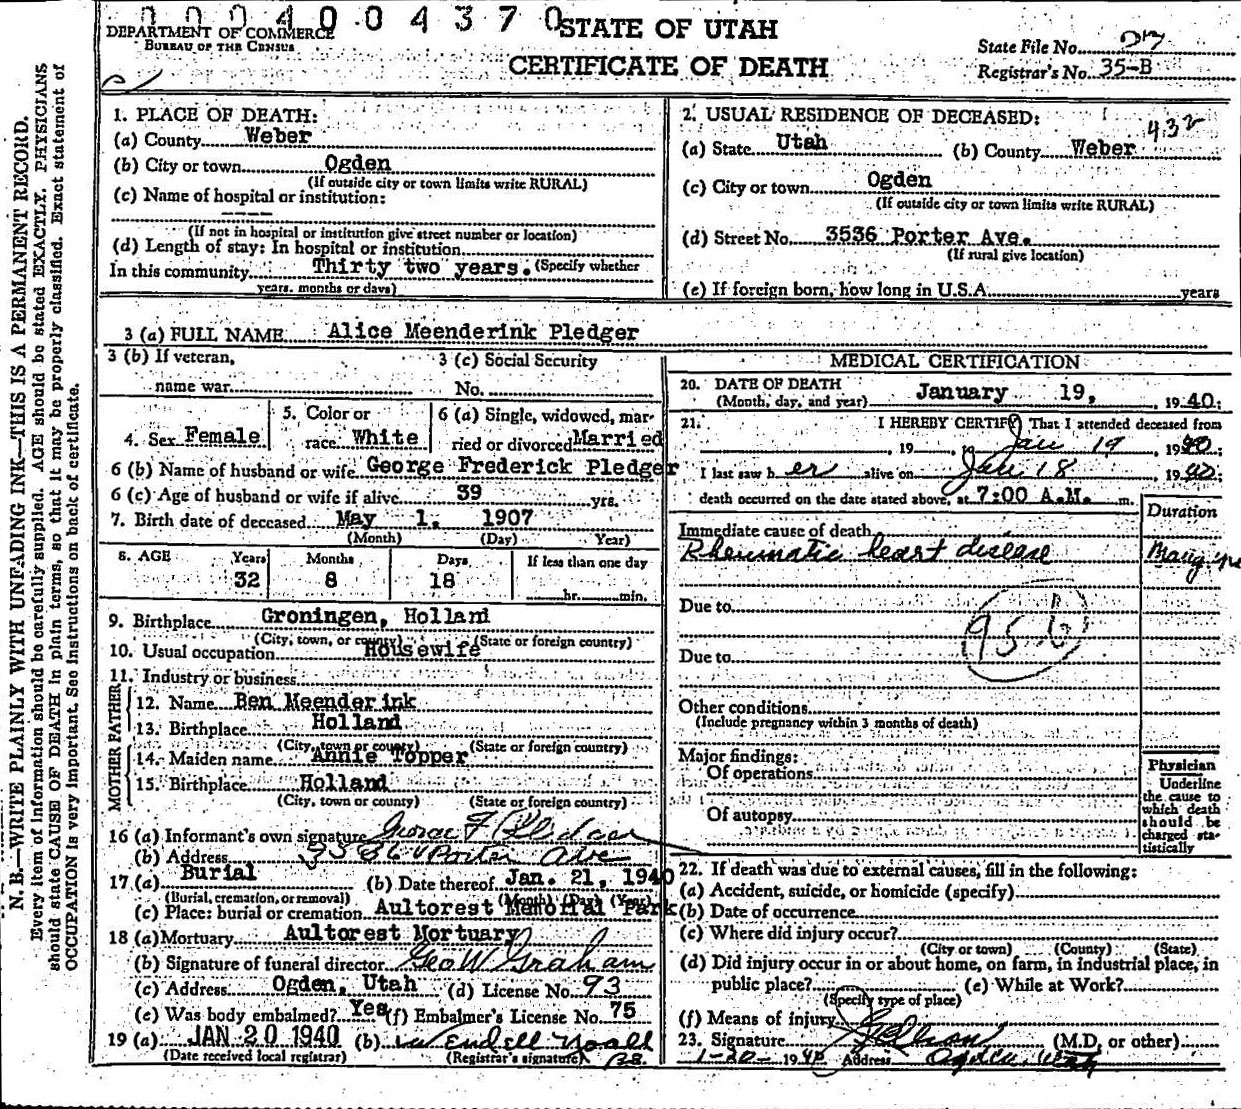 0004004370
STATE OF UTAH
DEPARTMENT OF COMMERCE
BUREAU OF THE CENSUS
CERTIFICATE OF DEATH
State File No.
Registrar's No. 35-B
N. B.—WRITE PLAINLY WITH UNFADING INK—THIS IS A PERMANENT RECORD.
Every item of information should be carefully supplied. AGE should be stated EXACTLY. PHYSICIANS
should state CAUSE OF DEATH in plain terms, so that it may be properly classified. Exact statement of
OCCUPATION is very important. See instructions on back of certificate.
1. PLACE OF DEATH:
(a) County Weber
(b) City or town Ogden
(If outside city or town limits write RURAL)
(c) Name of hospital or institution:
----
(If not in hospital or institution give street number or location)
(d) Length of stay: In hospital or institution
In this community Thirty two years. (Specify whether
years, months or days)
2. USUAL RESIDENCE OF DECEASED:
432
(a) State Utah (b) County Weber
(c) City or town Ogden
(If outside city or town limits write RURAL)
(d) Street No. 3536 Porter Ave.
(If rural give location)
(e) If foreign born, how long in U.S.A. years
3 (a) FULL NAME Alice Meenderink Pledger
3 (b) If veteran, 3 (c) Social Security
name war No.
4. Sex Female 5. Color or race White 6 (a) Single, widowed, married or divorced Married
6 (b) Name of husband or wife George Frederick Pledger
6 (c) Age of husband or wife if alive 39 yrs.
7. Birth date of deceased May 1, 1907
(Month) (Day) Year)
8. AGE Years Months Days If less than one day
32 8 18 hr. min.
9. Birthplace Groningen, Holland
(City, town, or county) (State or foreign country)
10. Usual occupation Housewife
11. Industry or business
FATHER
12. Name Ben Meenderink
13. Birthplace Holland
(City, town or county) (State or foreign country)
MOTHER
14. Maiden name Annie Topper
15. Birthplace Holland
(City, town or county) (State or foreign country)
16 (a) Informant's own signature George F Pledger
(b) Address 3536 Porter Ave
17 (a) Burial (b) Date thereof Jan. 21, 1940
(Burial, cremation, or removal) (Month) (Day) (Year)
(c) Place: burial or cremation Aultorest Memorial Park
18 (a) Mortuary Aultorest Mortuary
(b) Signature of funeral director Geo W Graham
(c) Address Ogden, Utah (d) License No. 93
(e) Was body embalmed? Yes (f) Embalmer's License No. 75
19 (a) JAN 20 1940 (b) Wendell Noall
(Date received local registrar) (Registrar's signature)
MEDICAL CERTIFICATION
20. DATE OF DEATH January 19, 1940:
(Month, day, and year)
21. I HEREBY CERTIFY That I attended deceased from
, 19 Jan 19, 1940
I last saw her alive on Jan 18, 1940;
death occurred on the date stated above, at 7:00 A.M. m.
Duration
Immediate cause of death
Rheumatic heart disease Many
Due to
95 b
Due to
Other conditions
(Include pregnancy within 3 months of death)
Major findings:
Of operations
Of autopsy
Physician
Underline
the cause to
which death
should be
charged sta-
tistically
22. If death was due to external causes, fill in the following:
(a) Accident, suicide, or homicide (specify)
(b) Date of occurrence
(c) Where did injury occur?
(City or town) (County) (State)
(d) Did injury occur in or about home, on farm, in industrial place, in
public place? (e) While at Work?
(Specify type of place)
(f) Means of injury
23. Signature (M.D. or other)
1-20- 1940 Address Ogden, Utah